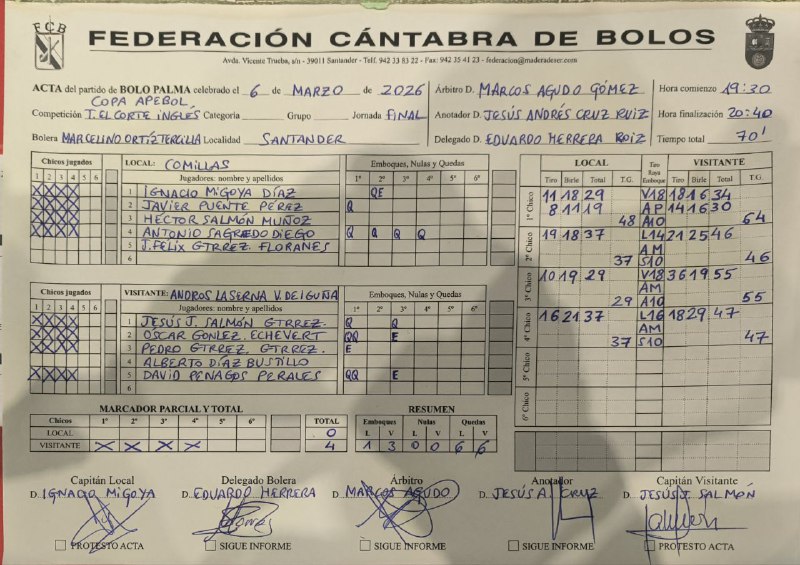 FCB
FEDERACIÓN CÁNTABRA DE BOLOS
Avda. Vicente Trueba, s/n - 39011 Santander - Telf. 942 33 83 22 - Fax: 942 35 41 23 - federacion@maderadeser.com
ACTA del partido de BOLO PALMA celebrado el 6 de MARZO de 2026
COPA APEBOL
Competición T. EL CORTE INGLÉS Categoría Grupo Jornada FINAL
Bolera MARCELINO ORTIZ TERCILLA Localidad SANTANDER
Árbitro D. MARCOS AGUDO GÓMEZ
Anotador D. JESÚS ANDRÉS CRUZ RUIZ
Delegado D. EDUARDO HERRERA RUIZ
Hora comienzo 19:30
Hora finalización 20:40
Tiempo total 70'
Chicos jugados LOCAL: COMILLAS Emboques, Nulas y Quedas
1 2 3 4 5 6 Jugadores: nombre y apellidos 1º 2º 3º 4º 5º 6º
X X X X 1 IGNACIO MIGOYA DÍAZ QE
X X X X 2 JAVIER PUENTE PÉREZ Q
X X X X 3 HECTOR SALMÓN MUÑOZ
X X X X 4 ANTONIO SAGREDO DIEGO Q Q Q Q
5 J. FELIX GTRREZ. FLORANES
6
Chicos jugados VISITANTE: ANDROS LA SERNA V. DE IGUÑA Emboques, Nulas y Quedas
1 2 3 4 5 6 Jugadores: nombre y apellidos 1º 2º 3º 4º 5º 6º
X X X X 1 JESÚS J. SALMÓN GTRREZ. Q Q
X X X X 2 OSCAR GONLEZ. ECHEVERT QQ E
X X X X 3 PEDRO GTRREZ. GTRREZ. E
4 ALBERTO DÍAZ BUSTILLO
X X X X 5 DAVID PENAGOS PERALES QQ E
6
MARCADOR PARCIAL Y TOTAL
Chicos 1º 2º 3º 4º 5º 6º TOTAL
LOCAL 0
VISITANTE X X X X 4
RESUMEN
Emboques Nulas Quedas
L V L V L V
1 3 0 0 6 6
LOCAL Tiro Raya Emboque VISITANTE
Tiro Birle Total T.G. Tiro Birle Total T.G.
1º Chico 11 18 29 V18 18 16 34
8 11 19 AP 14 16 30
48 A10 64
2º Chico 19 18 37 L14 21 25 46
AM
37 S10 46
3º Chico 10 19 29 V18 36 19 55
AM
29 A10 55
4º Chico 16 21 37 L16 18 29 47
AM
37 S10 47
5º Chico
6º Chico
Capitán Local Delegado Bolera Árbitro Anotador Capitán Visitante
D. IGNACIO MIGOYA D. EDUARDO HERRERA D. MARCOS AGUDO D. JESÚS A. CRUZ D. JESÚS J. SALMÓN
PROTESTO ACTA SIGUE INFORME SIGUE INFORME SIGUE INFORME PROTESTO ACTA